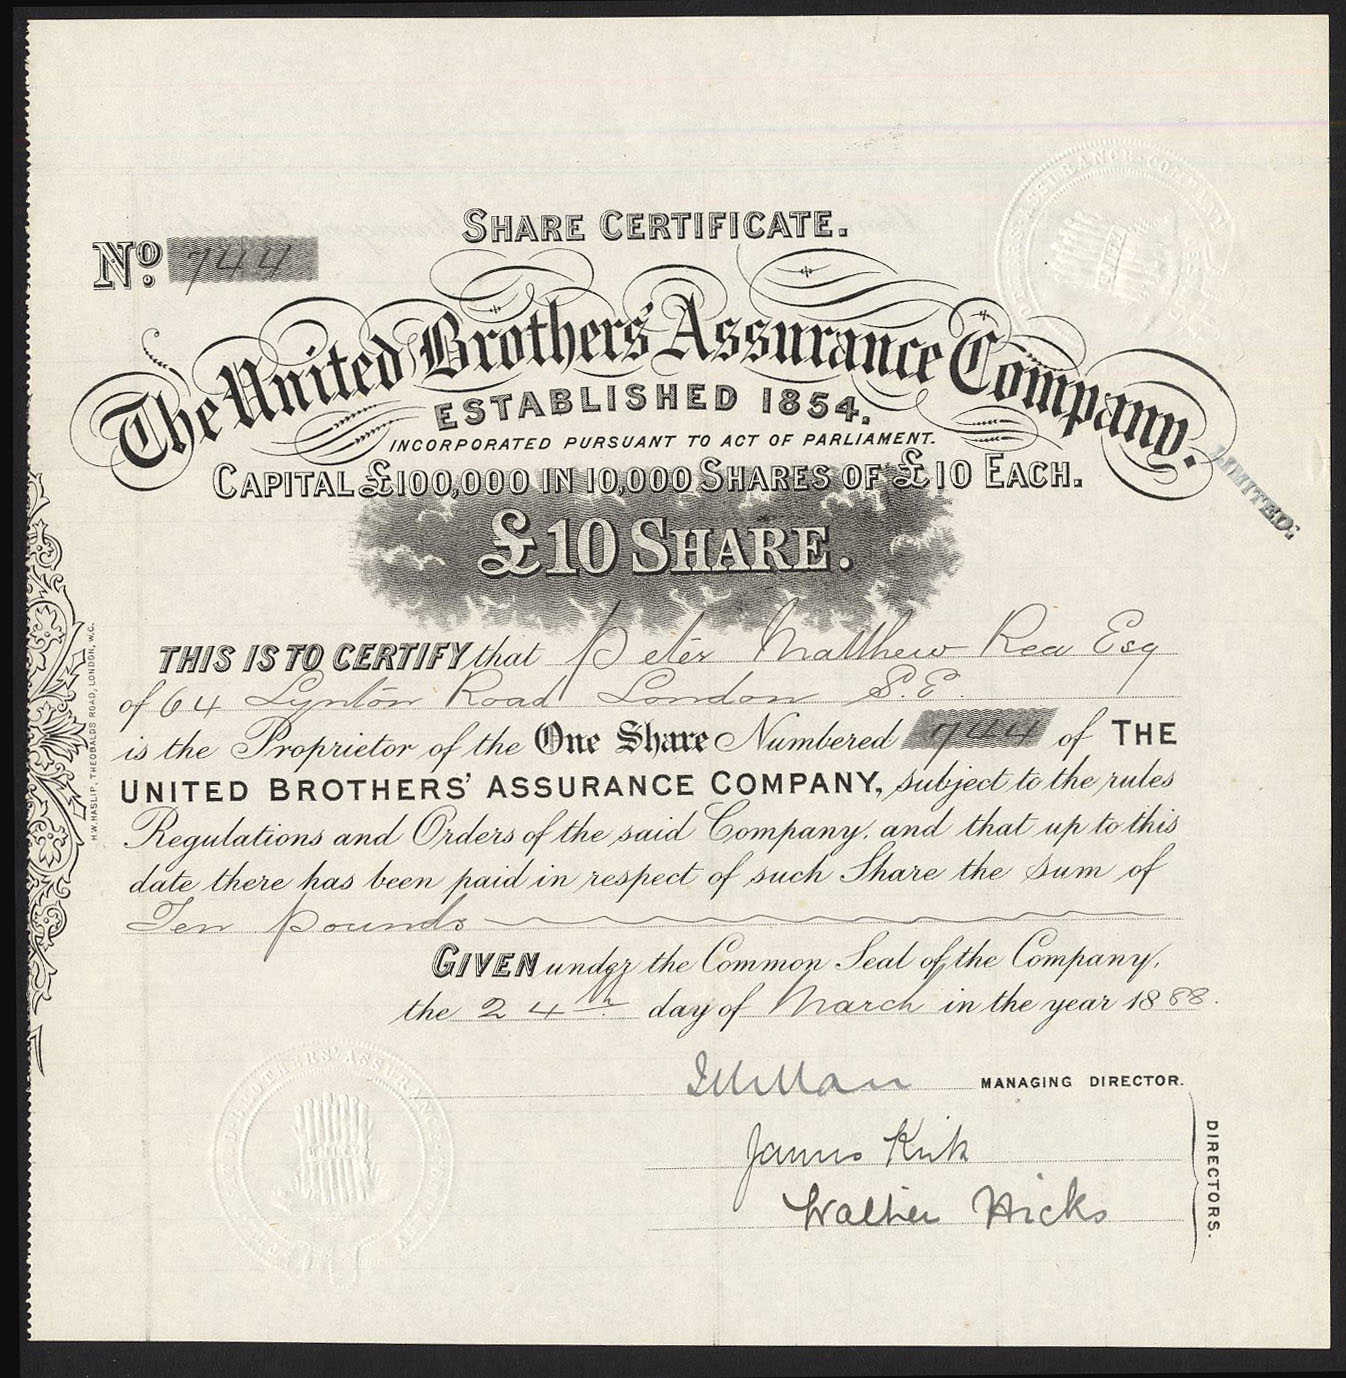 SHARE CERTIFICATE.
No. 744
The United Brothers' Assurance Company.
LIMITED.
ESTABLISHED 1854.
INCORPORATED PURSUANT TO ACT OF PARLIAMENT.
CAPITAL £100,000 IN 10,000 SHARES OF £10 EACH.
£10 SHARE.
THIS IS TO CERTIFY that Peter Matthew Rea Esq
of 64 Lynton Road London S.E.
is the Proprietor of the One Share Numbered 744 of THE
UNITED BROTHERS' ASSURANCE COMPANY, subject to the rules
Regulations and Orders of the said Company, and that up to this
date there has been paid in respect of such Share the sum of
Ten pounds
GIVEN under the Common Seal of the Company,
the 24th day of March in the year 1888.
MANAGING DIRECTOR.
James Kirk
Walter Hicks
DIRECTORS.
H.W. HASLIP, THEOBALDS ROAD, LONDON, W.C.